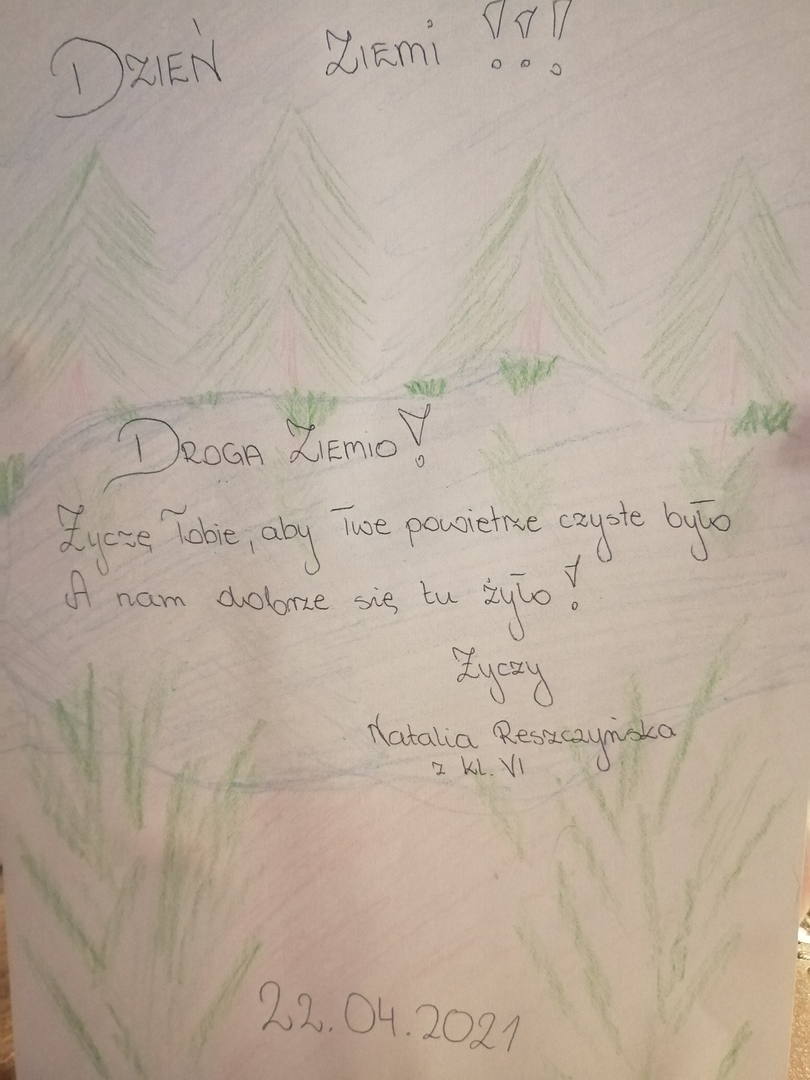 DZIEŃ ZIEMI !!!
DROGA ZIEMIO!
Życzę Tobie, aby Twe powietrze czyste było
A nam dobrze się tu żyło!
Życzy
Natalia Reszczyńska
z kl. VI
22.04.2021